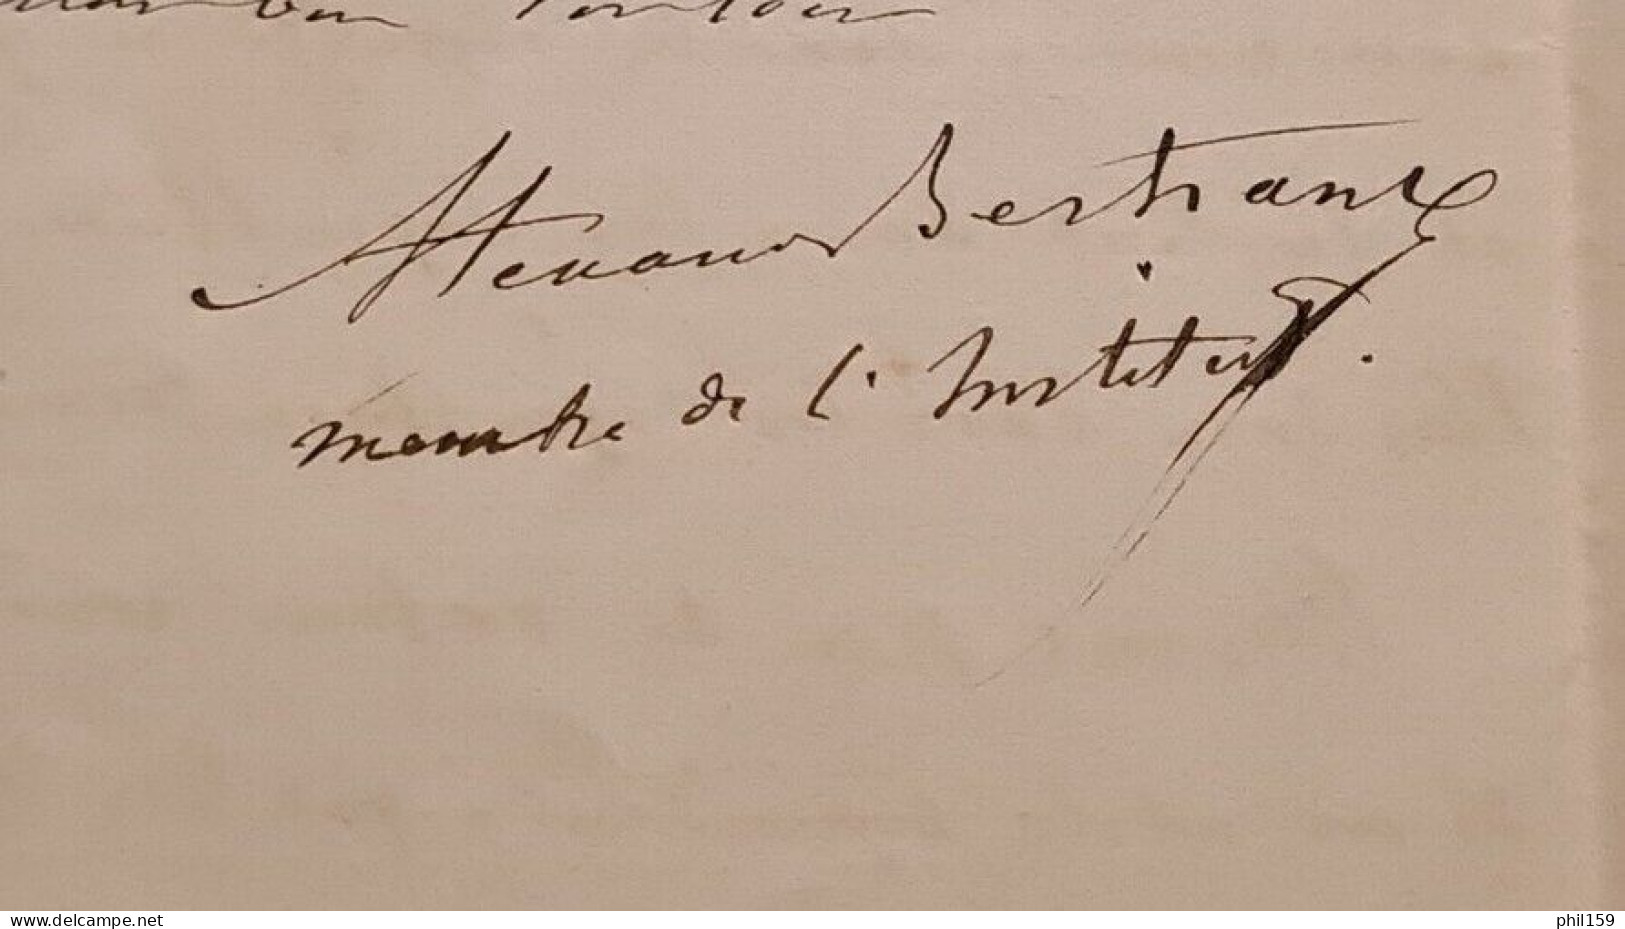 Alexandre Bertrand
membre de l'Institut.
www.delcampe.net
phil159